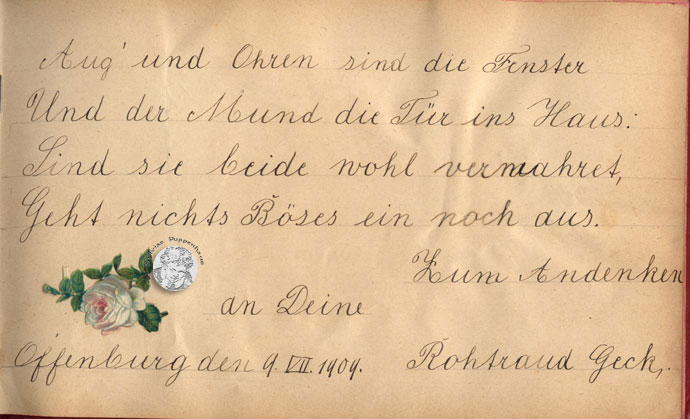 Aug' und Ohren sind die Fenster
Und der Mund die Tür ins Haus:
Sind sie beide wohl verwahret,
Geht nichts Böses ein noch aus.
Puppenhaus
Zum Andenken
an Deine
Offenburg den 9. VII. 1909. Rohtraud Geck,.